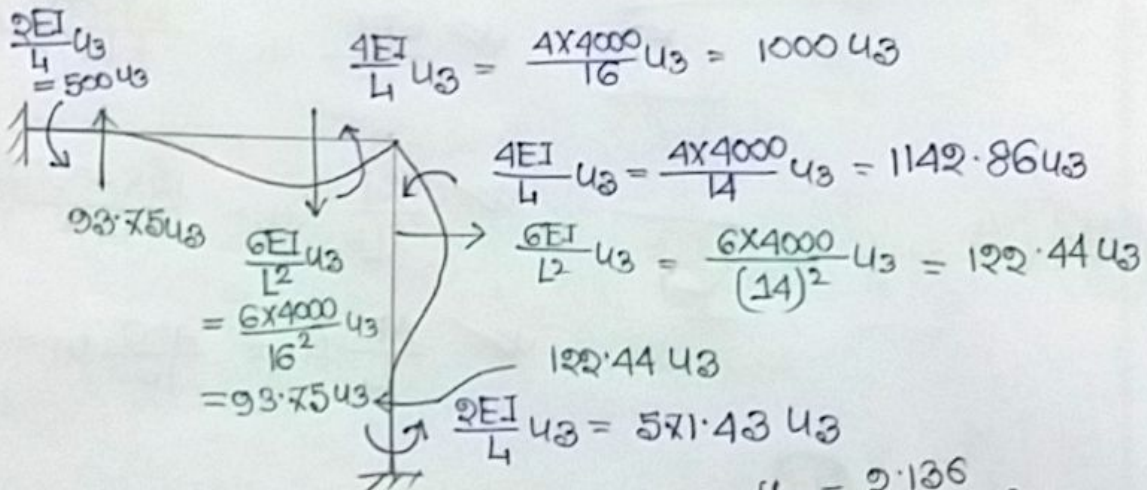 2EI/L u3
= 500 u3
4EI/L u3 = 4X4000/16 u3 = 1000 u3
4EI/L u3 = 4X4000/14 u3 = 1142.86 u3
93.75 u3
6EI/L² u3
= 6X4000/16² u3
= 93.75 u3
6EI/L² u3 = 6X4000/(14)² u3 = 122.44 u3
122.44 u3
2EI/L u3 = 571.43 u3
= 2.136